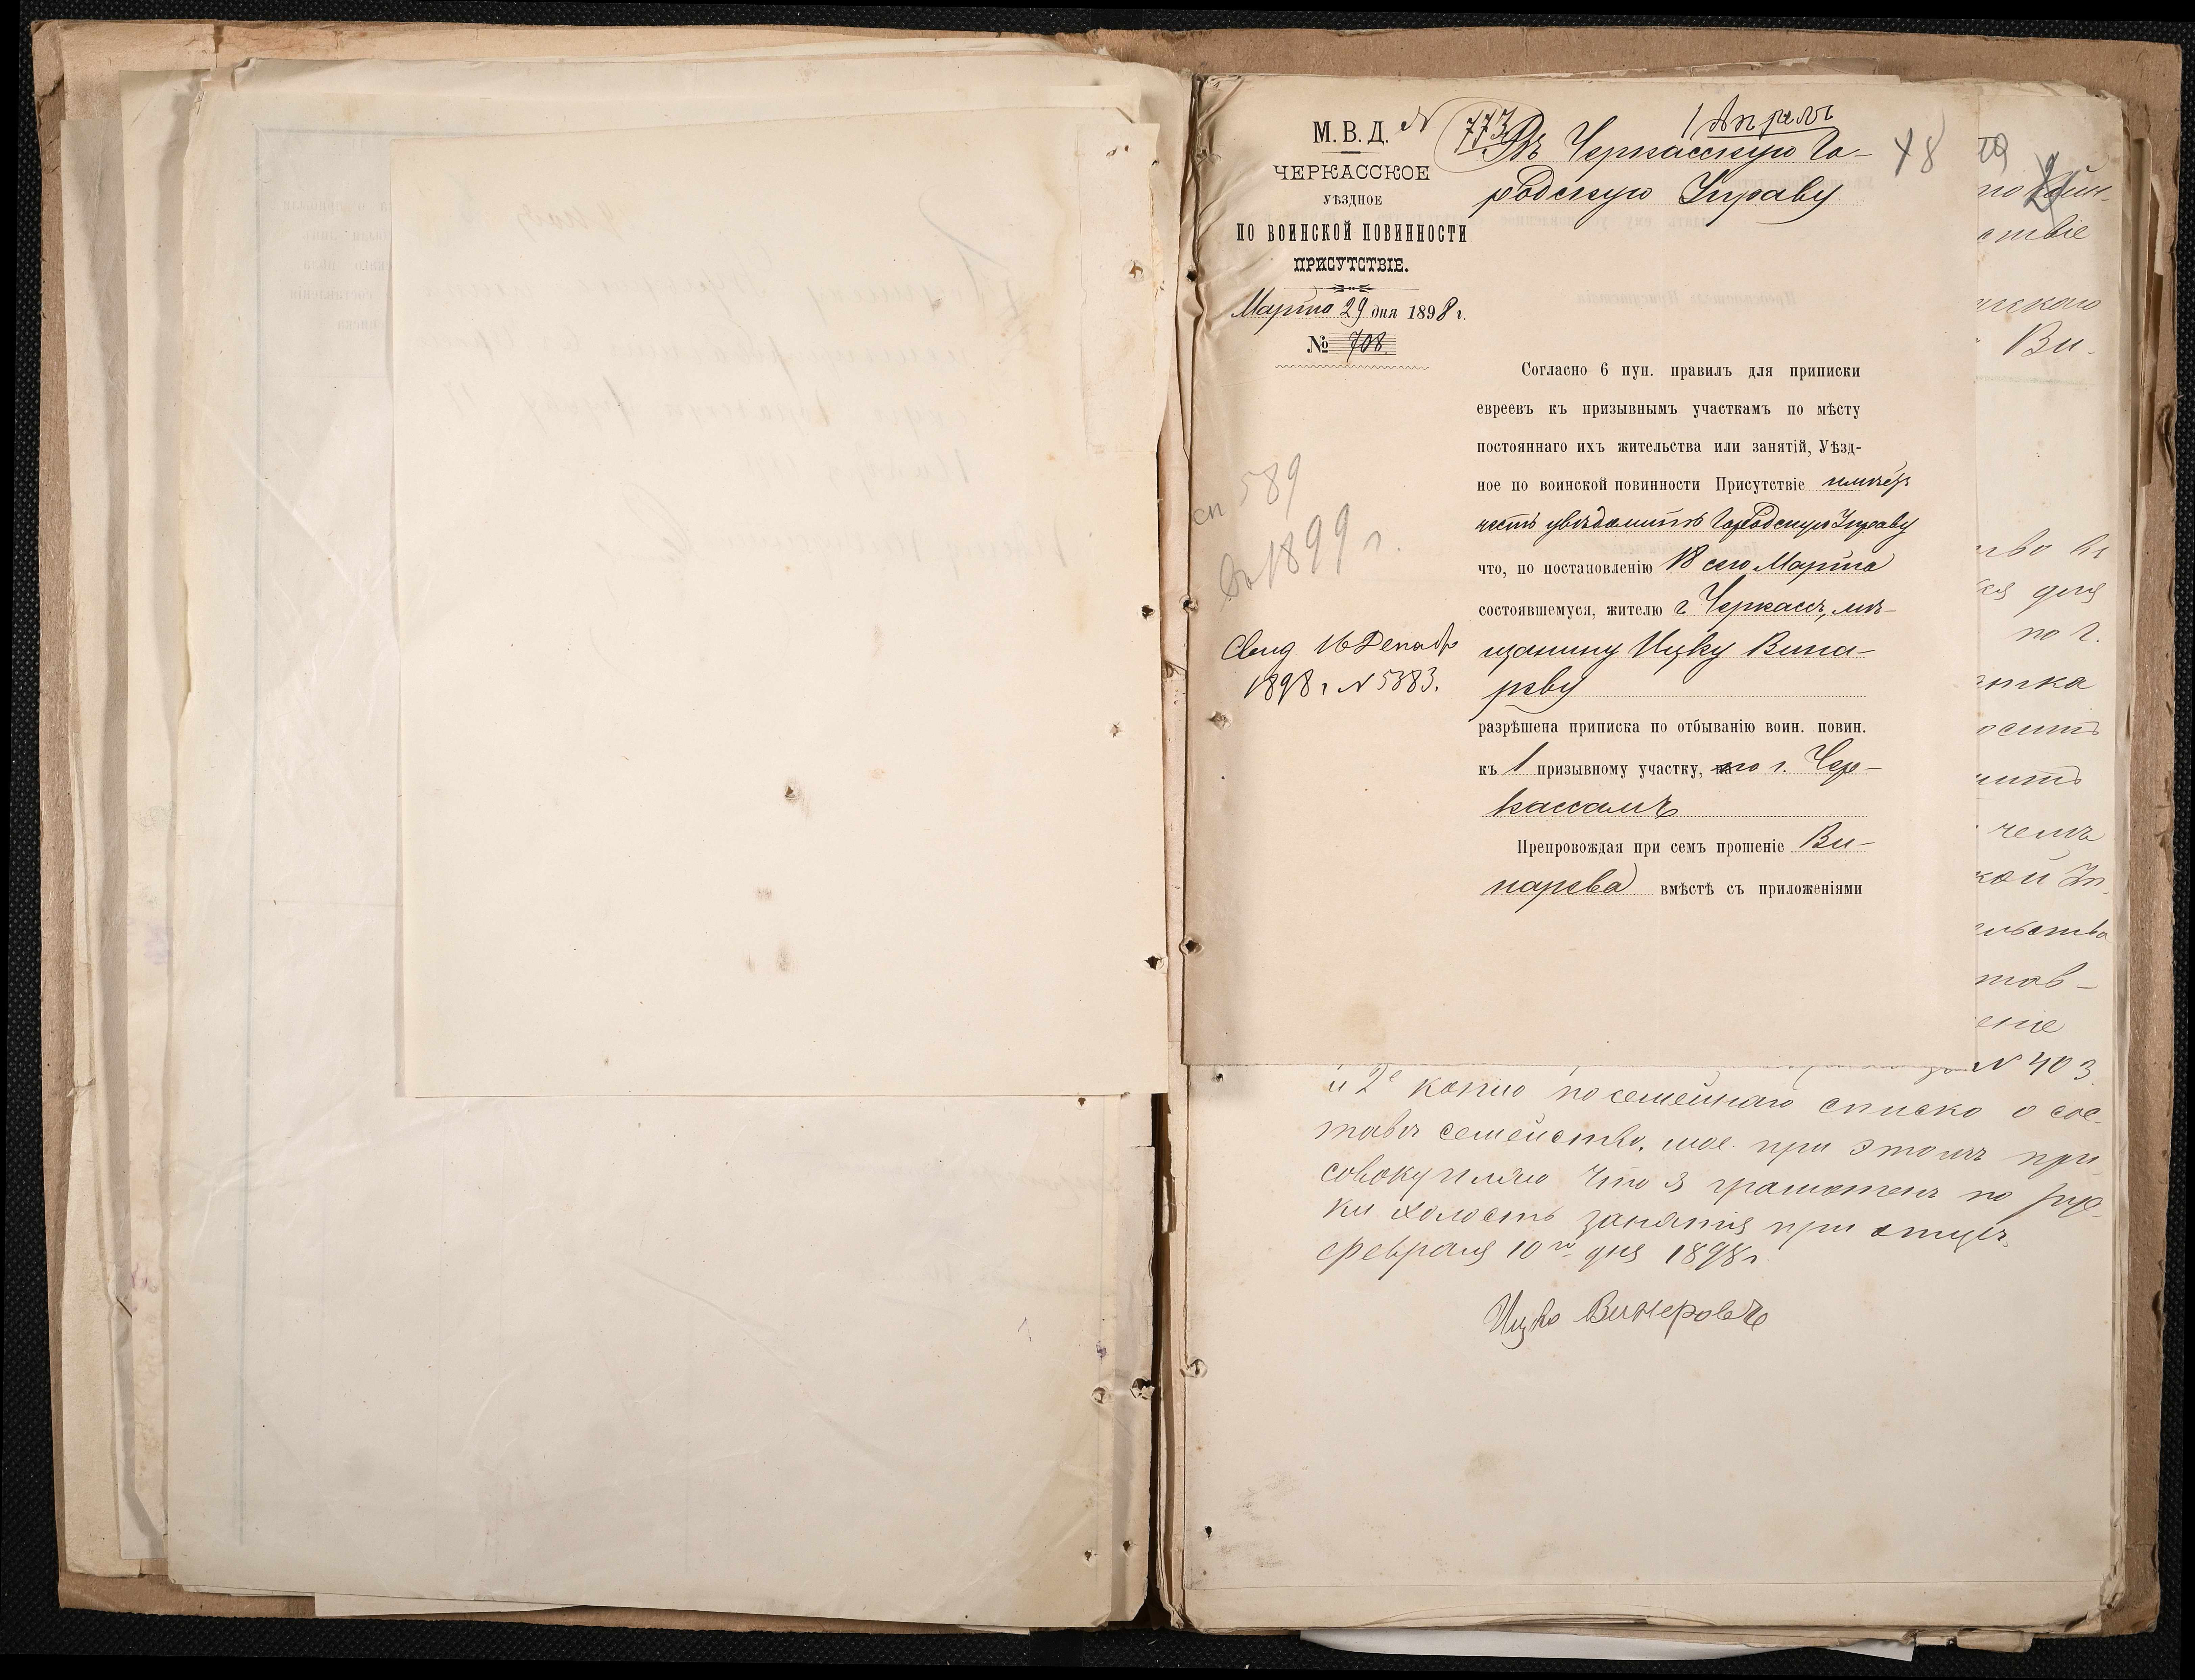 М. В. Д. N 773
1 Апрель
48
ЧЕРКАССКОЕ
УѢЗДНОЕ
ПО ВОИНСКОЙ ПОВИННОСТИ
ПРИСУТСТВІЕ.
Марта 29 дня 1898 г.
№ 708.
Въ Черкасскую Го-
родскую Управу
сп 589
1899 г.
Свид. 16 Декабр
1898 г N 5383.
Согласно 6 пун. правилъ для приписки
евреевъ къ призывнымъ участкамъ по мѣсту
постояннаго ихъ жительства или занятій, Уѣзд-
ное по воинской повинности Присутствіе имѣетъ
честь увѣдомить Городскую Управу
что, по постановленію 18 сего Марта
состоявшемуся, жителю г. Черкассъ, мѣ-
щанину Ицку Вина-
реву
разрѣшена приписка по отбыванію воин. повин.
къ 1 призывному участку, по г. Чер-
кассамъ
Препровождая при семъ прошеніе Ви-
нарева вмѣстѣ съ приложеніями
ствіе
Ви-
для
по г.
чемъ
тав-
N 403
и 2е копію посемейнаго списка о сос-
тавѣ семейства. мое. при этомъ при
совокупляю что я граматенъ по рус-
ки холостъ занятія при отцѣ.
Февраля 10го дня 1898 г
Ицко Винеровъ